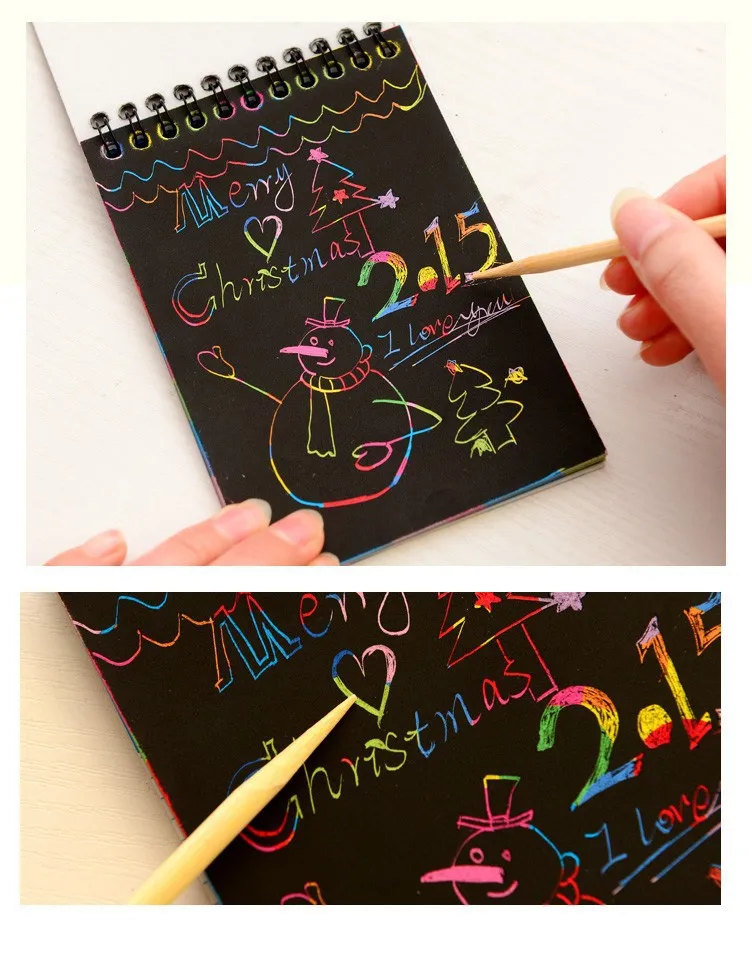 Merry
Christmas
2.15
I love you
Merry
Christmas
2.1
I love